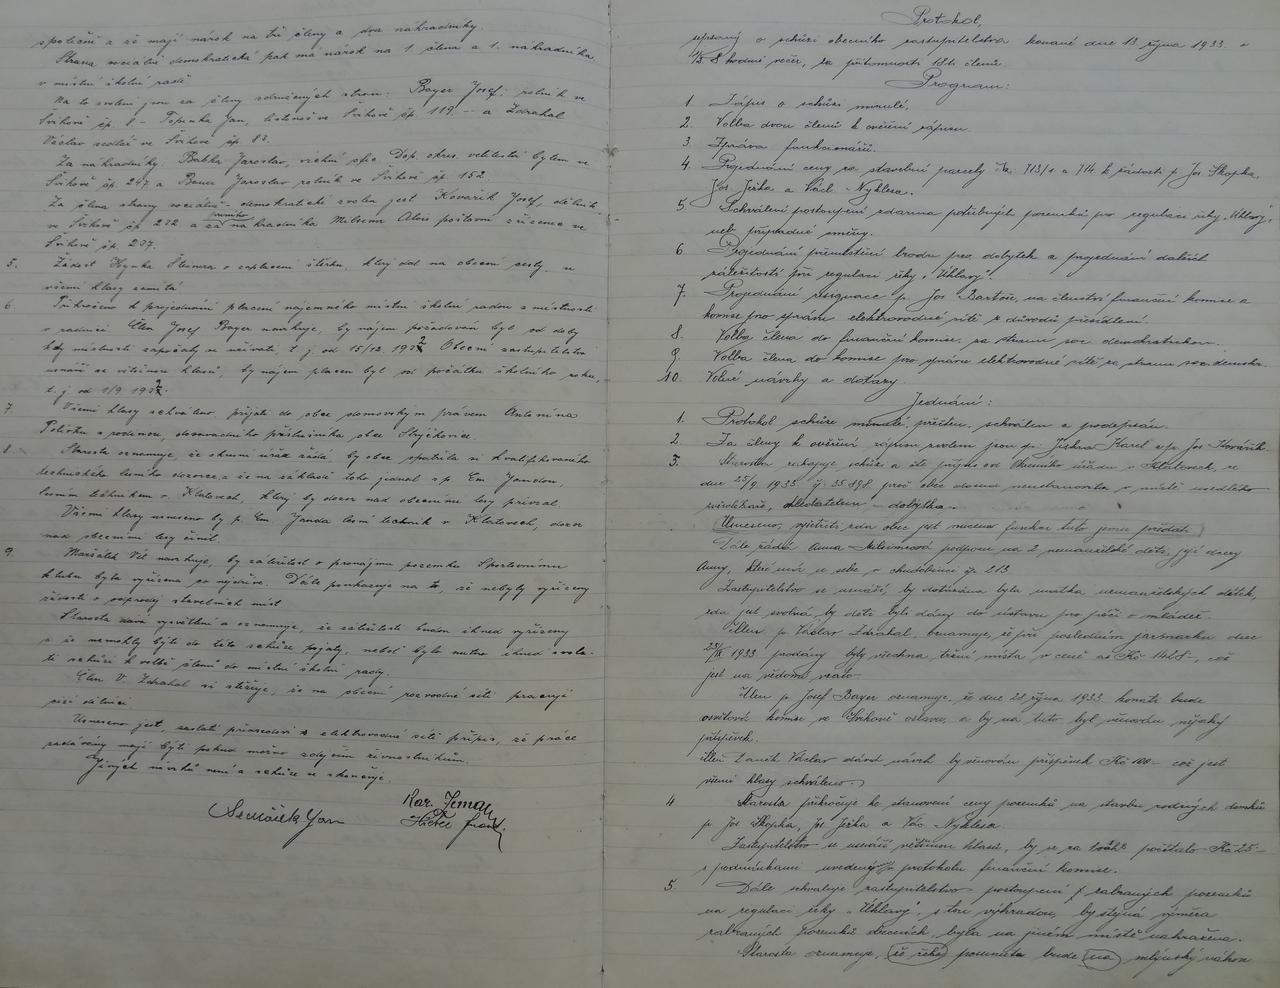 společní a že mají nárok na tři členy a dva náhradníky.
Strana sociálně demokratická pak má nárok na 1 člena a 1. náhradníka
v místní školní radě
Na to zvoleni jsou za členy sdružených stran: Bayer Josef, rolník ve
Švihově čp. 8 - Topinka Jan, ve Švihově čp. 119. - a Zdrahal
Václav sedlář ve Švihově čp 83.
Za náhradníky: Babka Jaroslav, vrchní ofic. Dop. okres. velitelství bytem ve
Švihově čp. 247 a Bauer Jaroslav rolník ve Švihově čp 152.
Za člena strany sociálně-demokratické zvolen jest Kovařík Josef, dělník
ve Švihově čp 232 a za prvního náhradníka Alois poštovní zřízenec ve
Švihově čp. 237.
5. Žádost Hynka o zaplacení štěrku, který dal na obecní cesty, se
všemi hlasy zamítá
6 Přikročeno k projednání placení nájemného místní školní radou z místnosti
v radnici Člen Josef Bayer navrhuje, by nájem požadován byl od doby
kdy místnosti započaty se užívati, t. j. od 15/12. 1932 Obecní zastupitelstvo
usnáší se většinou hlasů, by nájem placen byl od počátku školního roku,
t. j. od 1/9 1932.
7. Všemi hlasy schváleno, přijati do obce domovským právem Antonína
s rodinou, dosavadního příslušníka obce Strýčkovice.
8. Starosta oznamuje, že okresní úřad žádá, by obec opatřila si kvalifikovaného
technického lesního dozorce a že na základě toho jednal s p. Em Jandou,
lesním technikem v Klatovech, který by dozor nad obecními lesy převzal
Všemi hlasy usneseno by p. Em Janda lesní technik v Klatovech, dozor
nad obecními lesy činil.
9. Maršálek Vil navrhuje, by záležitost o pronájmu pozemku Sportovnímu
klubu byla vyřízena co nejdříve. Dále poukazuje na to, že nebyly vyřízeny
žádosti o odprodej stavebních míst
Starosta dává vysvětlení a oznamuje, že záležitosti budou ihned vyřízeny
a že nemohly býti do této schůze pojaty, neboť bylo nutno ihned svola-
ti schůzi k volbě členů do místní školní rady.
Člen V. Zdrahal si stěžuje, že na obecní rozvodné síti pracují
cizí dělníci
Usneseno jest, zaslati předsedovi elektrovodné sítě přípis, že práce
zadávány mají býti pokud možno zdejším živnostníkům.
Jiných návrhů není a schůze se skončuje.
Jan Kar. Zeman
Protokol,
sepsaný o schůzi obecního zastupitelstva konané dne 13 října 1933. o
1/2 8 hodině večer, za přítomnosti 18ti členů.
Program:
1 Zápis o schůzi minulé,
2. Volba dvou členů k ověření zápisu.
3 Zpráva funkcionářů.
4. Projednání ceny za stavební parcely čk. 713/1 a 714 k žádosti p. Jos Skopka,
Jos. Ježka a Václ. Nyklesa.
5. Schválení postoupení zdarma potřebných pozemků pro regulaci řeky "Úhlavy",
neb případné směny.
6. Projednání přemístění brodu pro dobytek a projednání dalších
záležitostí při regulaci řeky "Úhlavy".
7. Projednání resignace p. Jos Bartoše, na členství finanční komise a
komise pro správu elektrovodné sítě z důvodů přesídlení.
8. Volba člena do finanční komise, za stranu soc demokratickou.
9. Volba člena do komise pro správu elektrovodné sítě za stranu soc. demokr.
10. Volné návrhy a dotazy.
Jednání:
1. Protokol schůze minulé, přečten, schválen a podepsán.
2. Za členy k ověření zápisu zvoleni jsou pp. Jiskra Karel a p. Jos Kovařík.
3. Starosta zahajuje schůzi a čte přípis od Okresního úřadu v Klatovech, ze
dne 25/9. 1933 č. 35.898. proč obec dosud neustanovila v místě usedlého
zvěrolékaře, ohledatelem dobytka.
Usneseno, zjistiti zda obec jest nucena funkci tuto jemu předati
Dále žádá Anna podporu na 2 nemanželské děti, její dcery
Anny, které má u sebe v chudobinci čp. 213.
Zastupitelstvo se usnáší, by dotázána byla matka nemanželských dětí,
zda jest svolná by děti byli dány do ústavu pro péči o mládež.
Člen p. Václav Zdrahal, oznamuje, že při posledním jarmarku dne
1933 prodány byly všechna tržní místa v ceně as Kč 1428-, což
jest na vědomí vzato.
Člen p. Josef Bayer oznamuje, že dne 28 října 1933 konati bude
osvětová komise ve Švihově oslavu, a by na tuto byl věnován nějaký
příspěvek.
Člen Daněk Václav dává návrh by věnován příspěvek Kč 100- což jest
všemi hlasy schváleno.
4 Starosta přikročuje ke stanovení ceny pozemků na stavbu rodných domků
p. Jos Skopka, Jos Ježka a Vác Nyklesa
Zastupitelstvo se usnáší většinou hlasů, by se za 1 sáh² počítalo Kč 25-
s podmínkami uvedenými v protokolu finanční komise.
5. Dále schvaluje zastupitelstvo postoupení zabraných pozemků
na regulaci řeky "Úhlavy", s tou výhradou, by stejná výměra
zabraných pozemků obecních, byla na jiném místě nahražena.
Starosta oznamuje, že řeka posunuta bude na mlýnský náhon